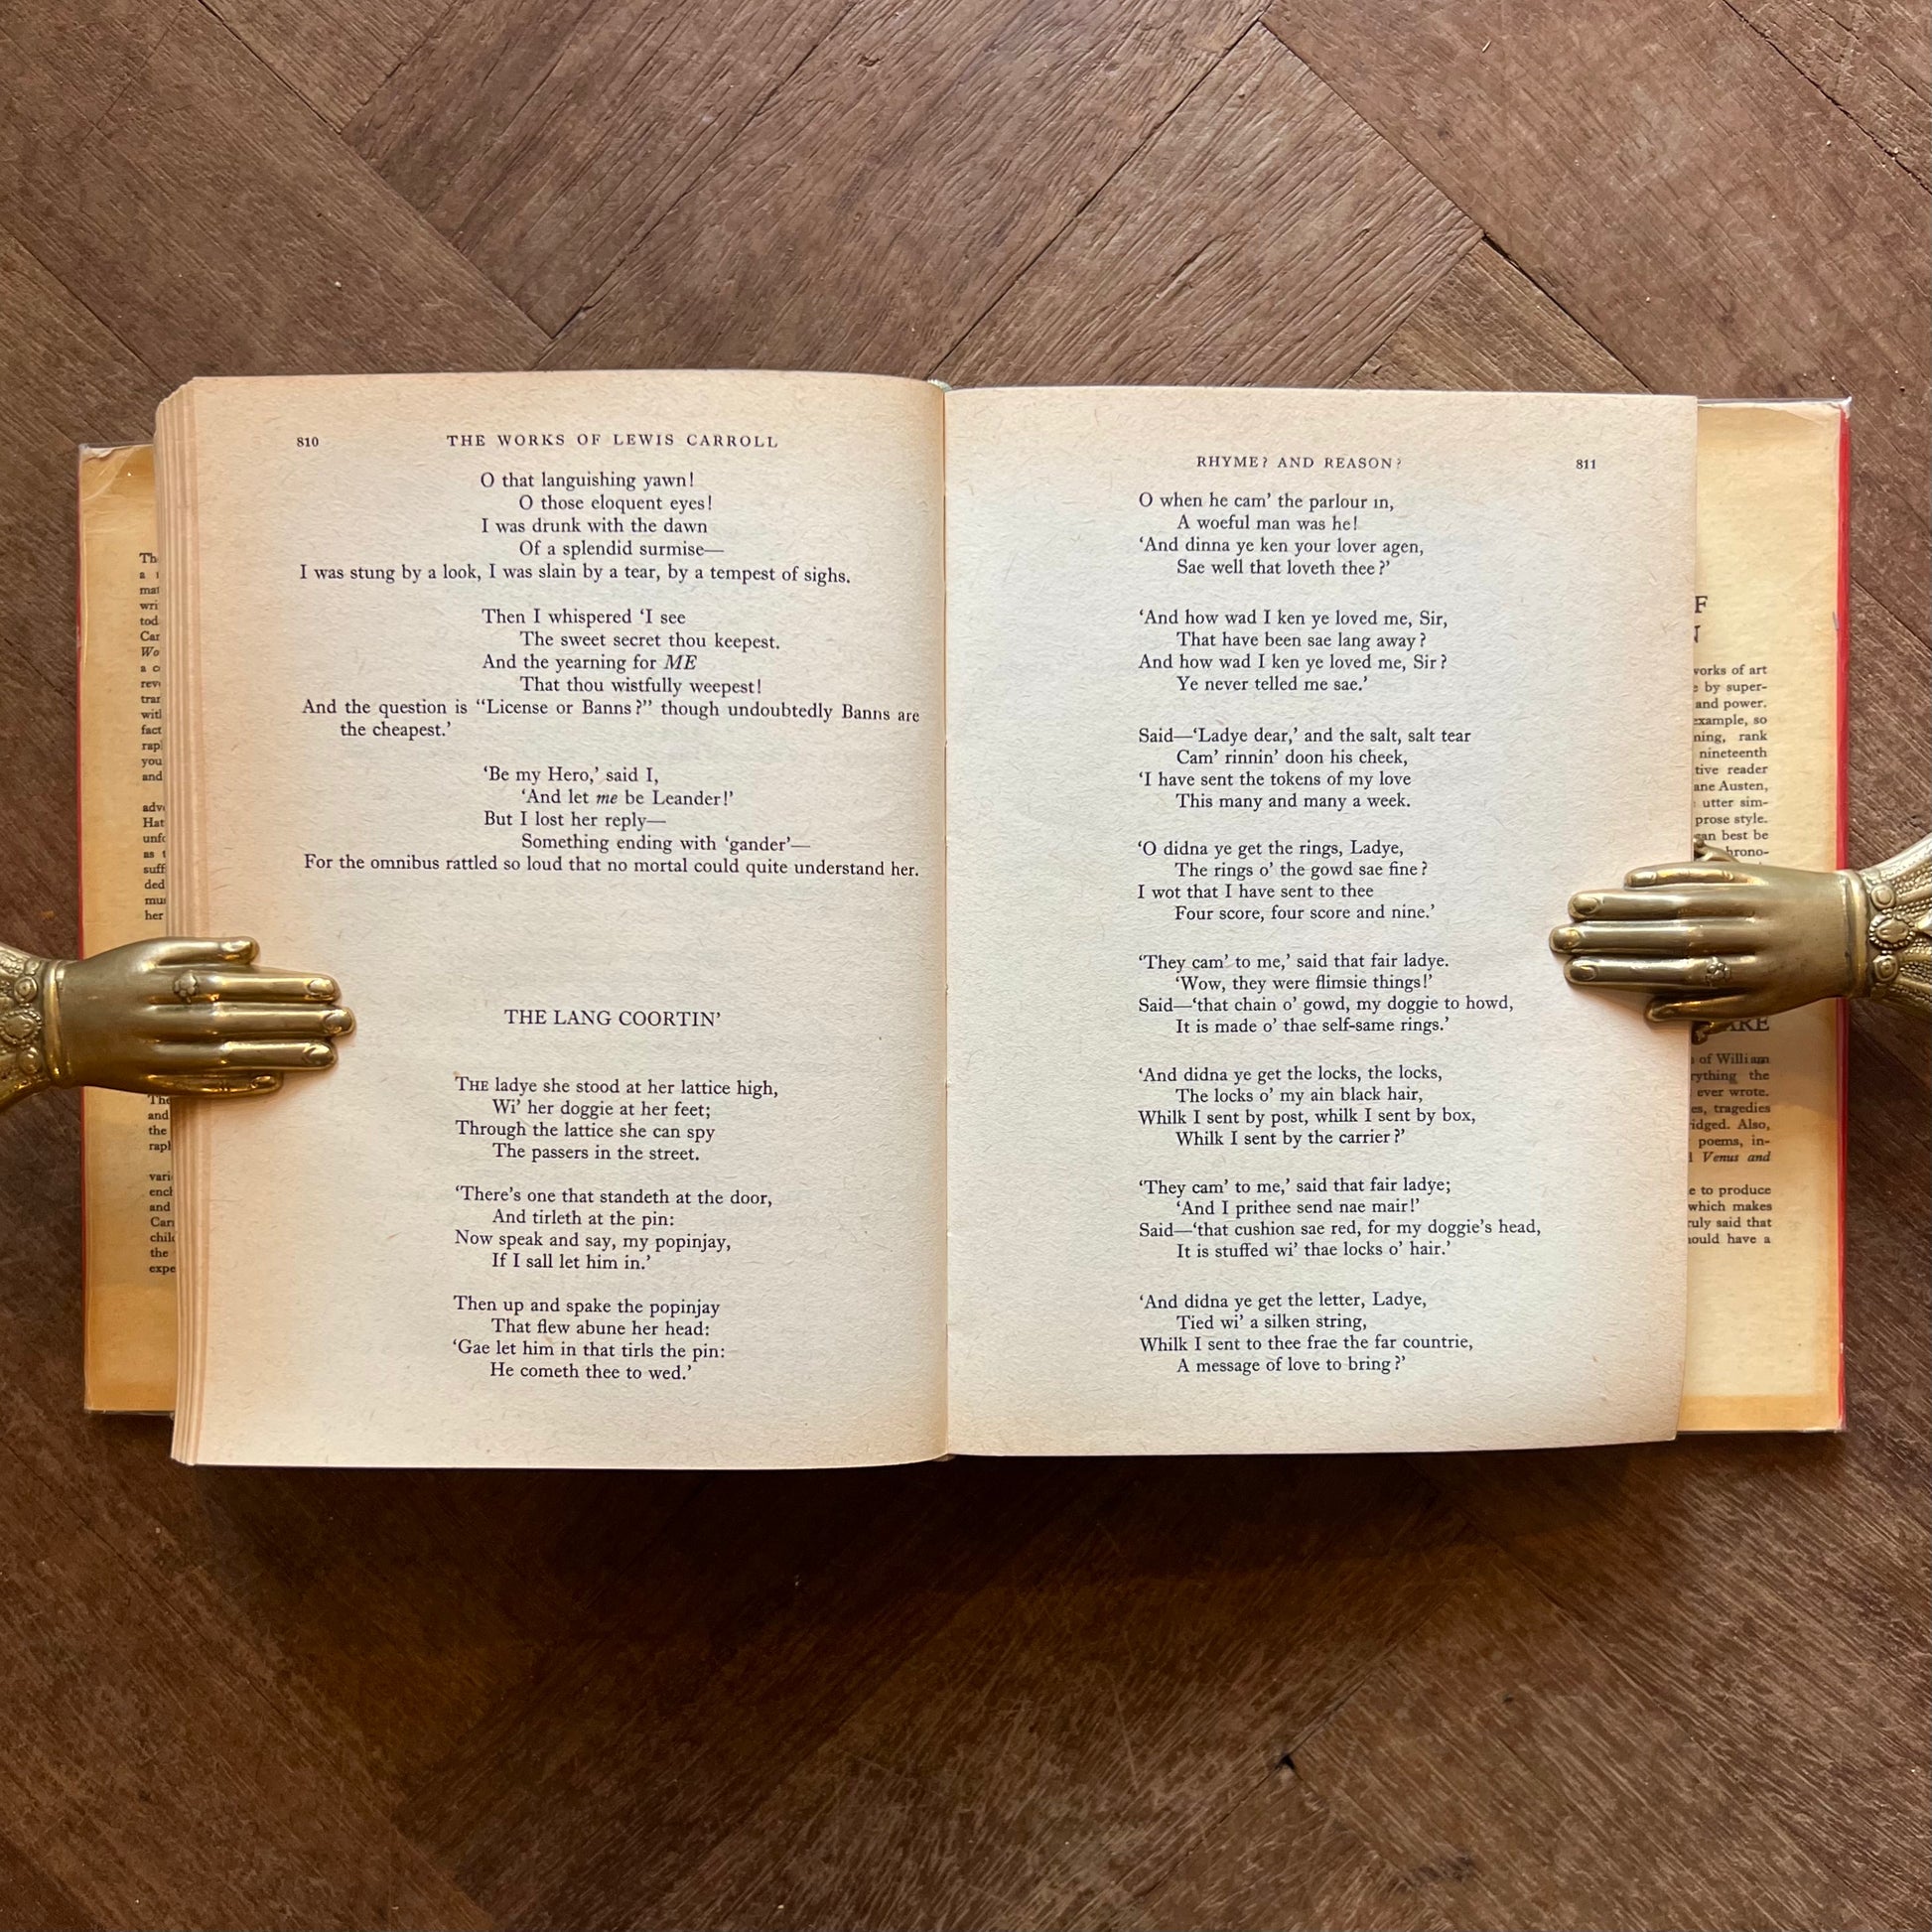 810 THE WORKS OF LEWIS CARROLL
O that languishing yawn!
O those eloquent eyes!
I was drunk with the dawn
Of a splendid surmise—
I was stung by a look, I was slain by a tear, by a tempest of sighs.
Then I whispered ‘I see
The sweet secret thou keepest.
And the yearning for ME
That thou wistfully weepest!
And the question is “License or Banns?” though undoubtedly Banns are
the cheapest.’
‘Be my Hero,’ said I,
‘And let me be Leander!’
But I lost her reply—
Something ending with ‘gander’—
For the omnibus rattled so loud that no mortal could quite understand her.
THE LANG COORTIN’
THE ladye she stood at her lattice high,
Wi’ her doggie at her feet;
Through the lattice she can spy
The passers in the street.
‘There’s one that standeth at the door,
And tirleth at the pin:
Now speak and say, my popinjay,
If I sall let him in.’
Then up and spake the popinjay
That flew abune her head:
‘Gae let him in that tirls the pin:
He cometh thee to wed.’
RHYME? AND REASON? 811
O when he cam’ the parlour in,
A woeful man was he!
‘And dinna ye ken your lover agen,
Sae well that loveth thee?’
‘And how wad I ken ye loved me, Sir,
That have been sae lang away?
And how wad I ken ye loved me, Sir?
Ye never telled me sae.’
Said—‘Ladye dear,’ and the salt, salt tear
Cam’ rinnin’ doon his cheek,
‘I have sent the tokens of my love
This many and many a week.
‘O didna ye get the rings, Ladye,
The rings o’ the gowd sae fine?
I wot that I have sent to thee
Four score, four score and nine.’
‘They cam’ to me,’ said that fair ladye.
‘Wow, they were flimsie things!’
Said—‘that chain o’ gowd, my doggie to howd,
It is made o’ thae self-same rings.’
‘And didna ye get the locks, the locks,
The locks o’ my ain black hair,
Whilk I sent by post, whilk I sent by box,
Whilk I sent by the carrier?’
‘They cam’ to me,’ said that fair ladye;
‘And I prithee send nae mair!’
Said—‘that cushion sae red, for my doggie’s head,
It is stuffed wi’ thae locks o’ hair.’
‘And didna ye get the letter, Ladye,
Tied wi’ a silken string,
Whilk I sent to thee frae the far countrie,
A message of love to bring?’
works of art
by super-
and power.
example, so
rank
nineteenth
reader
Austen,
utter sim-
prose style.
can best be
of William
the
ever wrote.
tragedies
Also,
poems, in-
Venus and
to produce
which makes
said that
have a